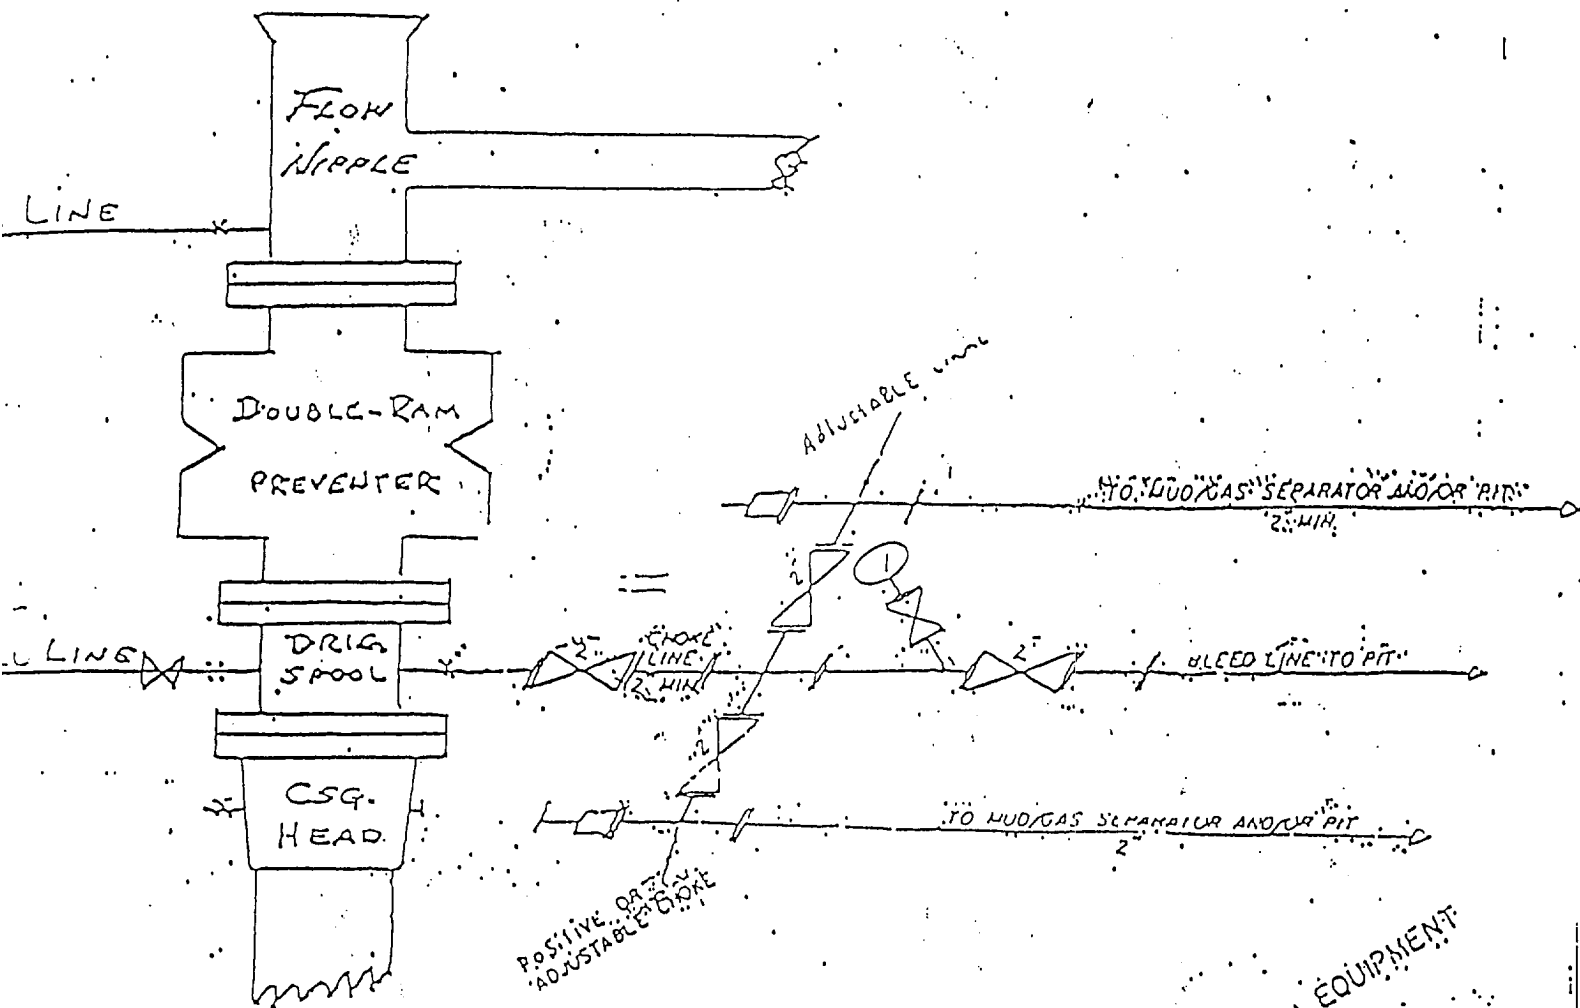 FLOW
NIPPLE
LINE
DOUBLE-RAM
PREVENTER
ADJUSTABLE
TO MUD/GAS SEPARATOR AND/OR PIT
2" MIN.
2"
1
DRLG.
SPOOL
LINE
2"
CHOKE
LINE
2" MIN
2"
BLEED LINE TO PIT
2"
CSG.
HEAD
TO MUD/GAS SEPARATOR AND/OR PIT
2"
POSITIVE OR
ADJUSTABLE CHOKE
EQUIPMENT